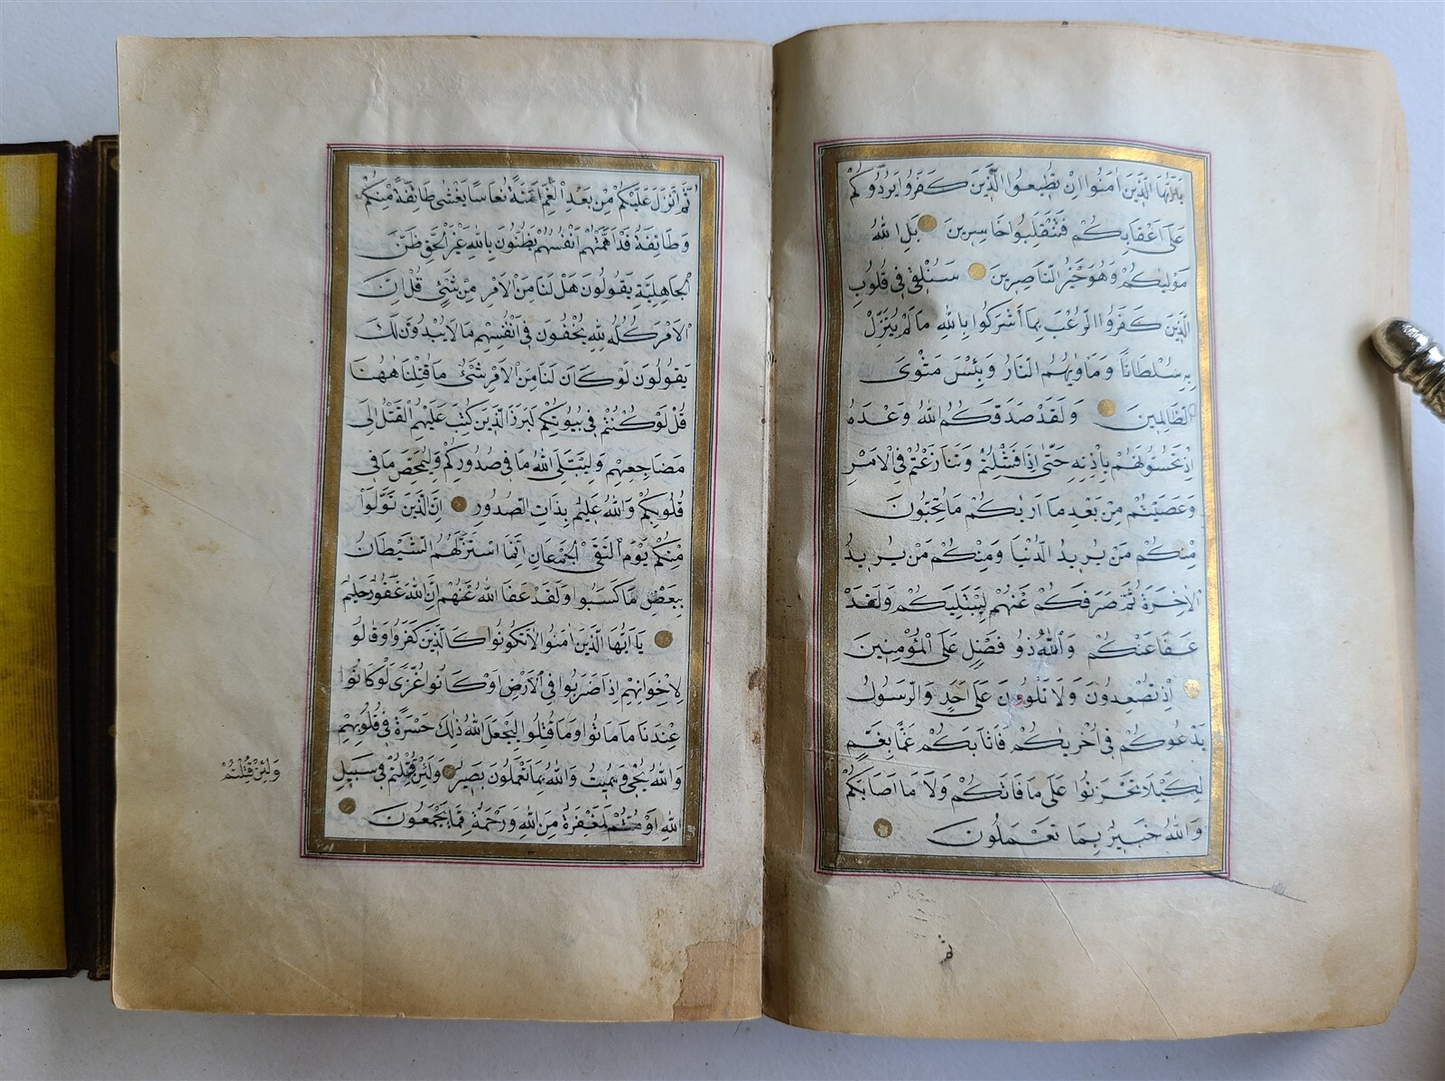 يا ايها الذين امنوا ان تطيعوا الذين كفروا يردوكم
على اعقابكم فتنقلبوا خاسرين بل الله
موليكم وهو خير الناصرين سنلقى فى قلوب
الذين كفروا الرعب بما اشركوا بالله ما لم ينزل
به سلطانا وماويهم النار وبئس مثوى
الظالمين ولقد صدقكم الله وعده
اذ تحسونهم باذنه حتى اذا فشلتم وتنازعتم فى الامر
وعصيتم من بعد ما اريكم ما تحبون
منكم من يريد الدنيا ومنكم من يريد
الاخرة ثم صرفكم عنهم ليبتليكم ولقد
عفا عنكم والله ذو فضل على المؤمنين
اذ تصعدون ولا تلوون على احد والرسول
يدعوكم فى اخريكم فاثابكم غما بغم
لكيلا تحزنوا على ما فاتكم ولا ما اصابكم
والله خبير بما تعملون
ثم
ثم انزل عليكم من بعد الغم امنة نعاسا يغشى طائفة منكم
وطائفة قد اهمتهم انفسهم يظنون بالله غير الحق ظن
الجاهلية يقولون هل لنا من الامر من شئ قل ان
الامر كله لله يخفون فى انفسهم ما لا يبدون لك
يقولون لو كان لنا من الامر شئ ما قتلنا ههنا
قل لو كنتم فى بيوتكم لبرز الذين كتب عليهم القتل الى
مضاجعهم وليبتلى الله ما فى صدوركم وليمحص ما فى
قلوبكم والله عليم بذات الصدور ان الذين تولوا
منكم يوم التقى الجمعان انما استزلهم الشيطان
ببعض ما كسبوا ولقد عفا الله عنهم ان الله غفور حليم
يا ايها الذين امنوا لا تكونوا كالذين كفروا وقالو
لاخوانهم اذا ضربوا فى الارض او كانوا غزى لو كانوا
عندنا ما ماتوا وما قتلوا ليجعل الله ذلك حسرة فى قلوبهم
والله يحيى ويميت والله بما تعملون بصير ولئن قتلتم فى سبيل
الله او متم لمغفرة من الله ورحمة مما يجمعون
ولئن قتلتم